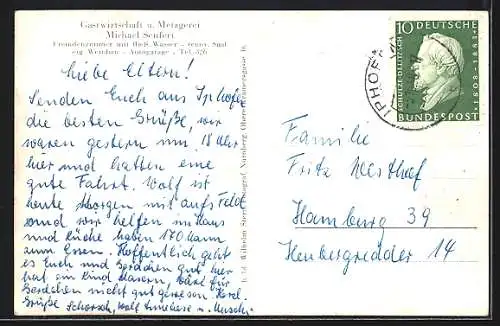 Gastwirtschaft u. Metzgerei
Michael Seufert
Fremdenzimmer mit fließ. Wasser - renov. Saal
eig Weinbau - Autogarage - Tel. 326
Liebe Eltern!
Senden Euch aus Iphofen
die besten Grüße, wir
waren gestern um 18 Uhr
hier und hatten eine
gute Fahrt. Wolf ist
heute Morgen mit aufs Feld
und wir helfen im Haus
und Küche haben 170 Mann
zum Essen. Hoffentlich geht
es Euch und Gerdchen gut hier
hat ein Kind Masern, wäre für
Gerdchen nicht gut gewesen. Herzl.
Grüße Schorsch, Wolf Anneliese u. Musch
Nürnberg, Obere Krämersgasse 16
IPHOFEN
10 DEUTSCHE
SCHULZE-DELITZSCH
1808-1883
BUNDESPOST
Familie
Fritz Westhof
Hamburg 39
Heubergredder 14